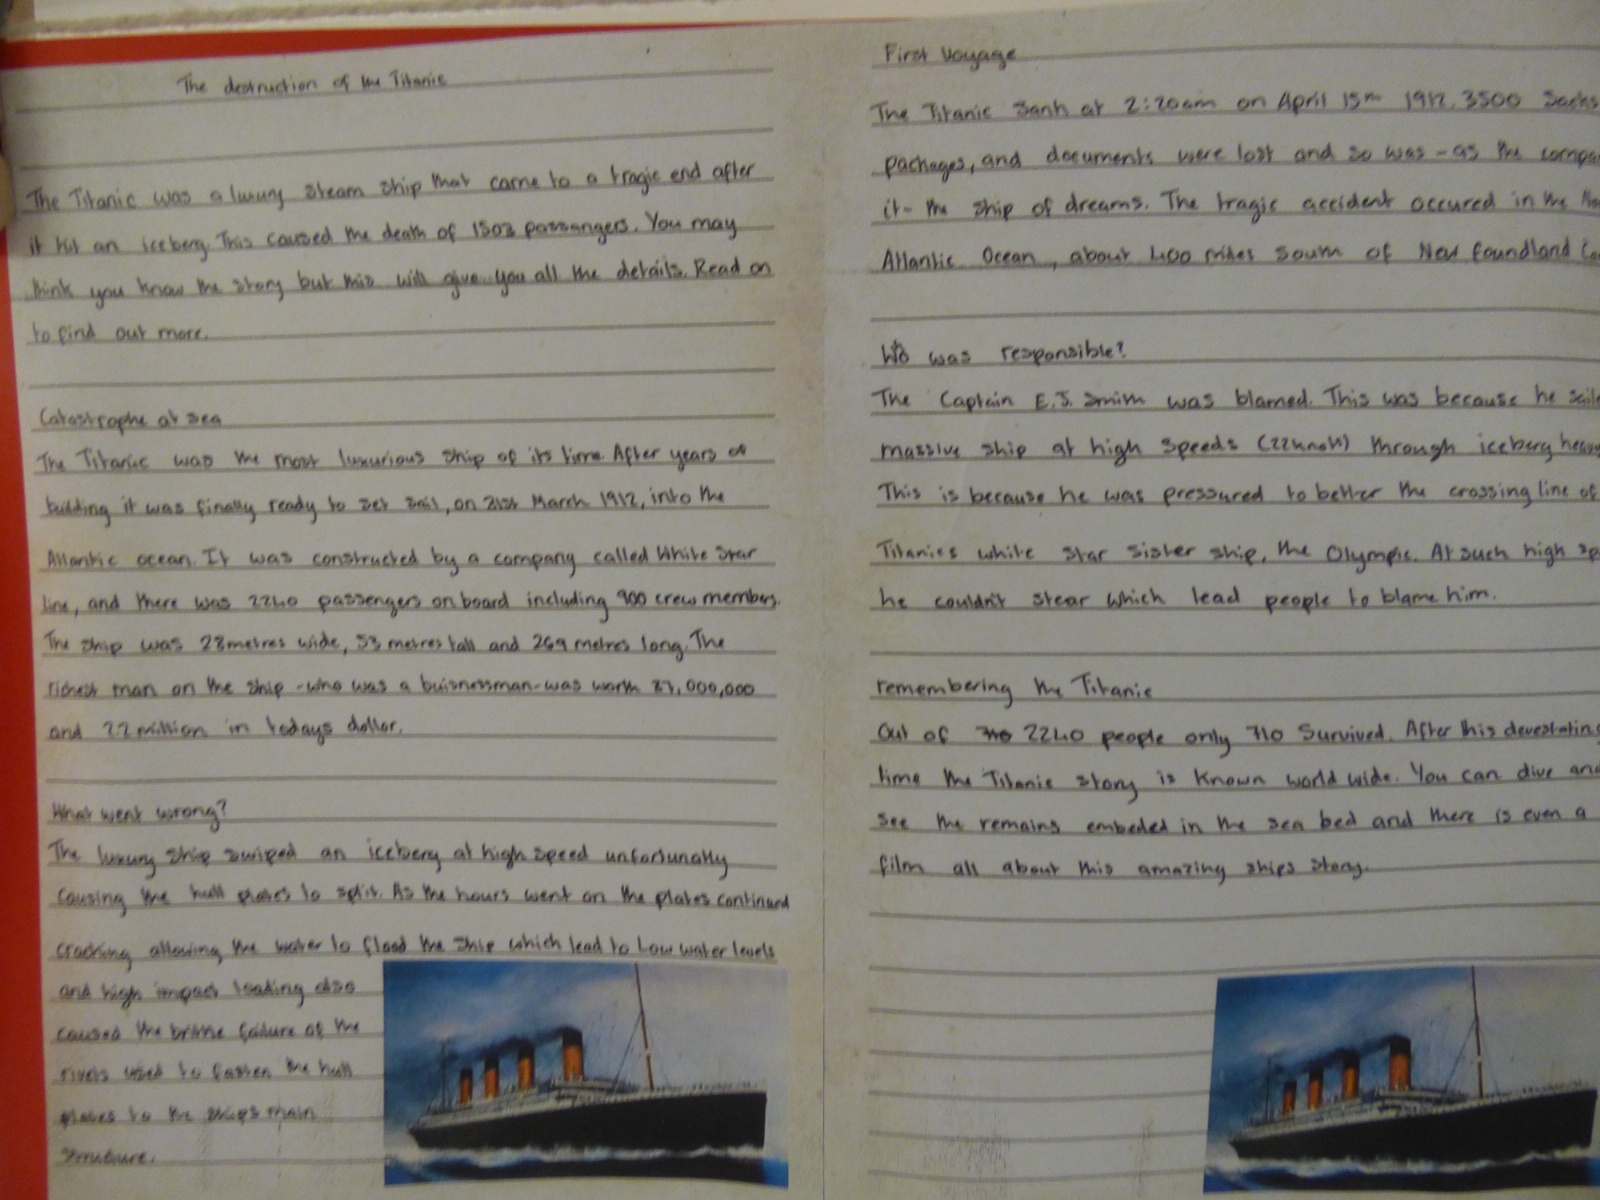 The destruction of the Titanic
The Titanic was a luxury steam ship that came to a tragic end after
it hit an iceberg. This caused the death of 1503 passangers. You may
think you know the story but this will give you all the details. Read on
to find out more.
Catastrophe at sea
The Titanic was the most luxurious ship of its time. After years of
building it was finally ready to set sail, on 31st March 1912, into the
Atlantic ocean. It was constructed by a company called White Star
line, and there was 2240 passengers on board including 900 crew members.
The ship was 28 metres wide, 53 metres tall and 269 metres long. The
richest man on the ship -who was a buisnessman- was worth 87,000,000
and 22 million in todays dollar.
What went wrong?
The luxury ship swiped an iceberg at high speed unfortunally
causing the hull plates to split. As the hours went on the plates continued
cracking allowing the water to flood the ship which lead to low water levels
and high impact loading also
caused the brittle failure of the
rivets used to fasten the hull
plates to the ships main
structure.
First Voyage
The Titanic sank at 2:20am on April 15th 1912. 3500 Sacks
packages, and documents were lost and so was - as the
it - the ship of dreams. The tragic accident occured in the
Atlantic Ocean, about 400 miles south of New foundland
Who was responsible?
The Captain E.J. Smith was blamed. This was because he
massive ship at high speeds (22knots) through iceberg
This is because he was pressured to better the crossing line of
Titanics white star sister ship, the Olympic. At such high
he couldn't stear which lead people to blame him.
remembering the Titanic
Out of 2240 people only 710 Survived. After this devestating
time the Titanic story is Known world wide. You can dive and
see the remains embeded in the sea bed and there is even a
film all about this amazing ships story.